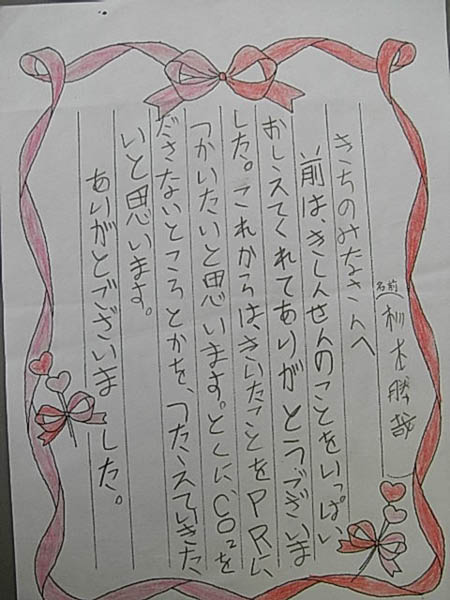 名前
きちのみなさんへ
前は、きしんせんのことをいっぱい
おしえてくれてありがとうございま
した。これからは、きいたことをPRに
つかいたいと思います。とくにCO²を
ださないところとかを、つたえていきた
いと思います。
ありがとございました。